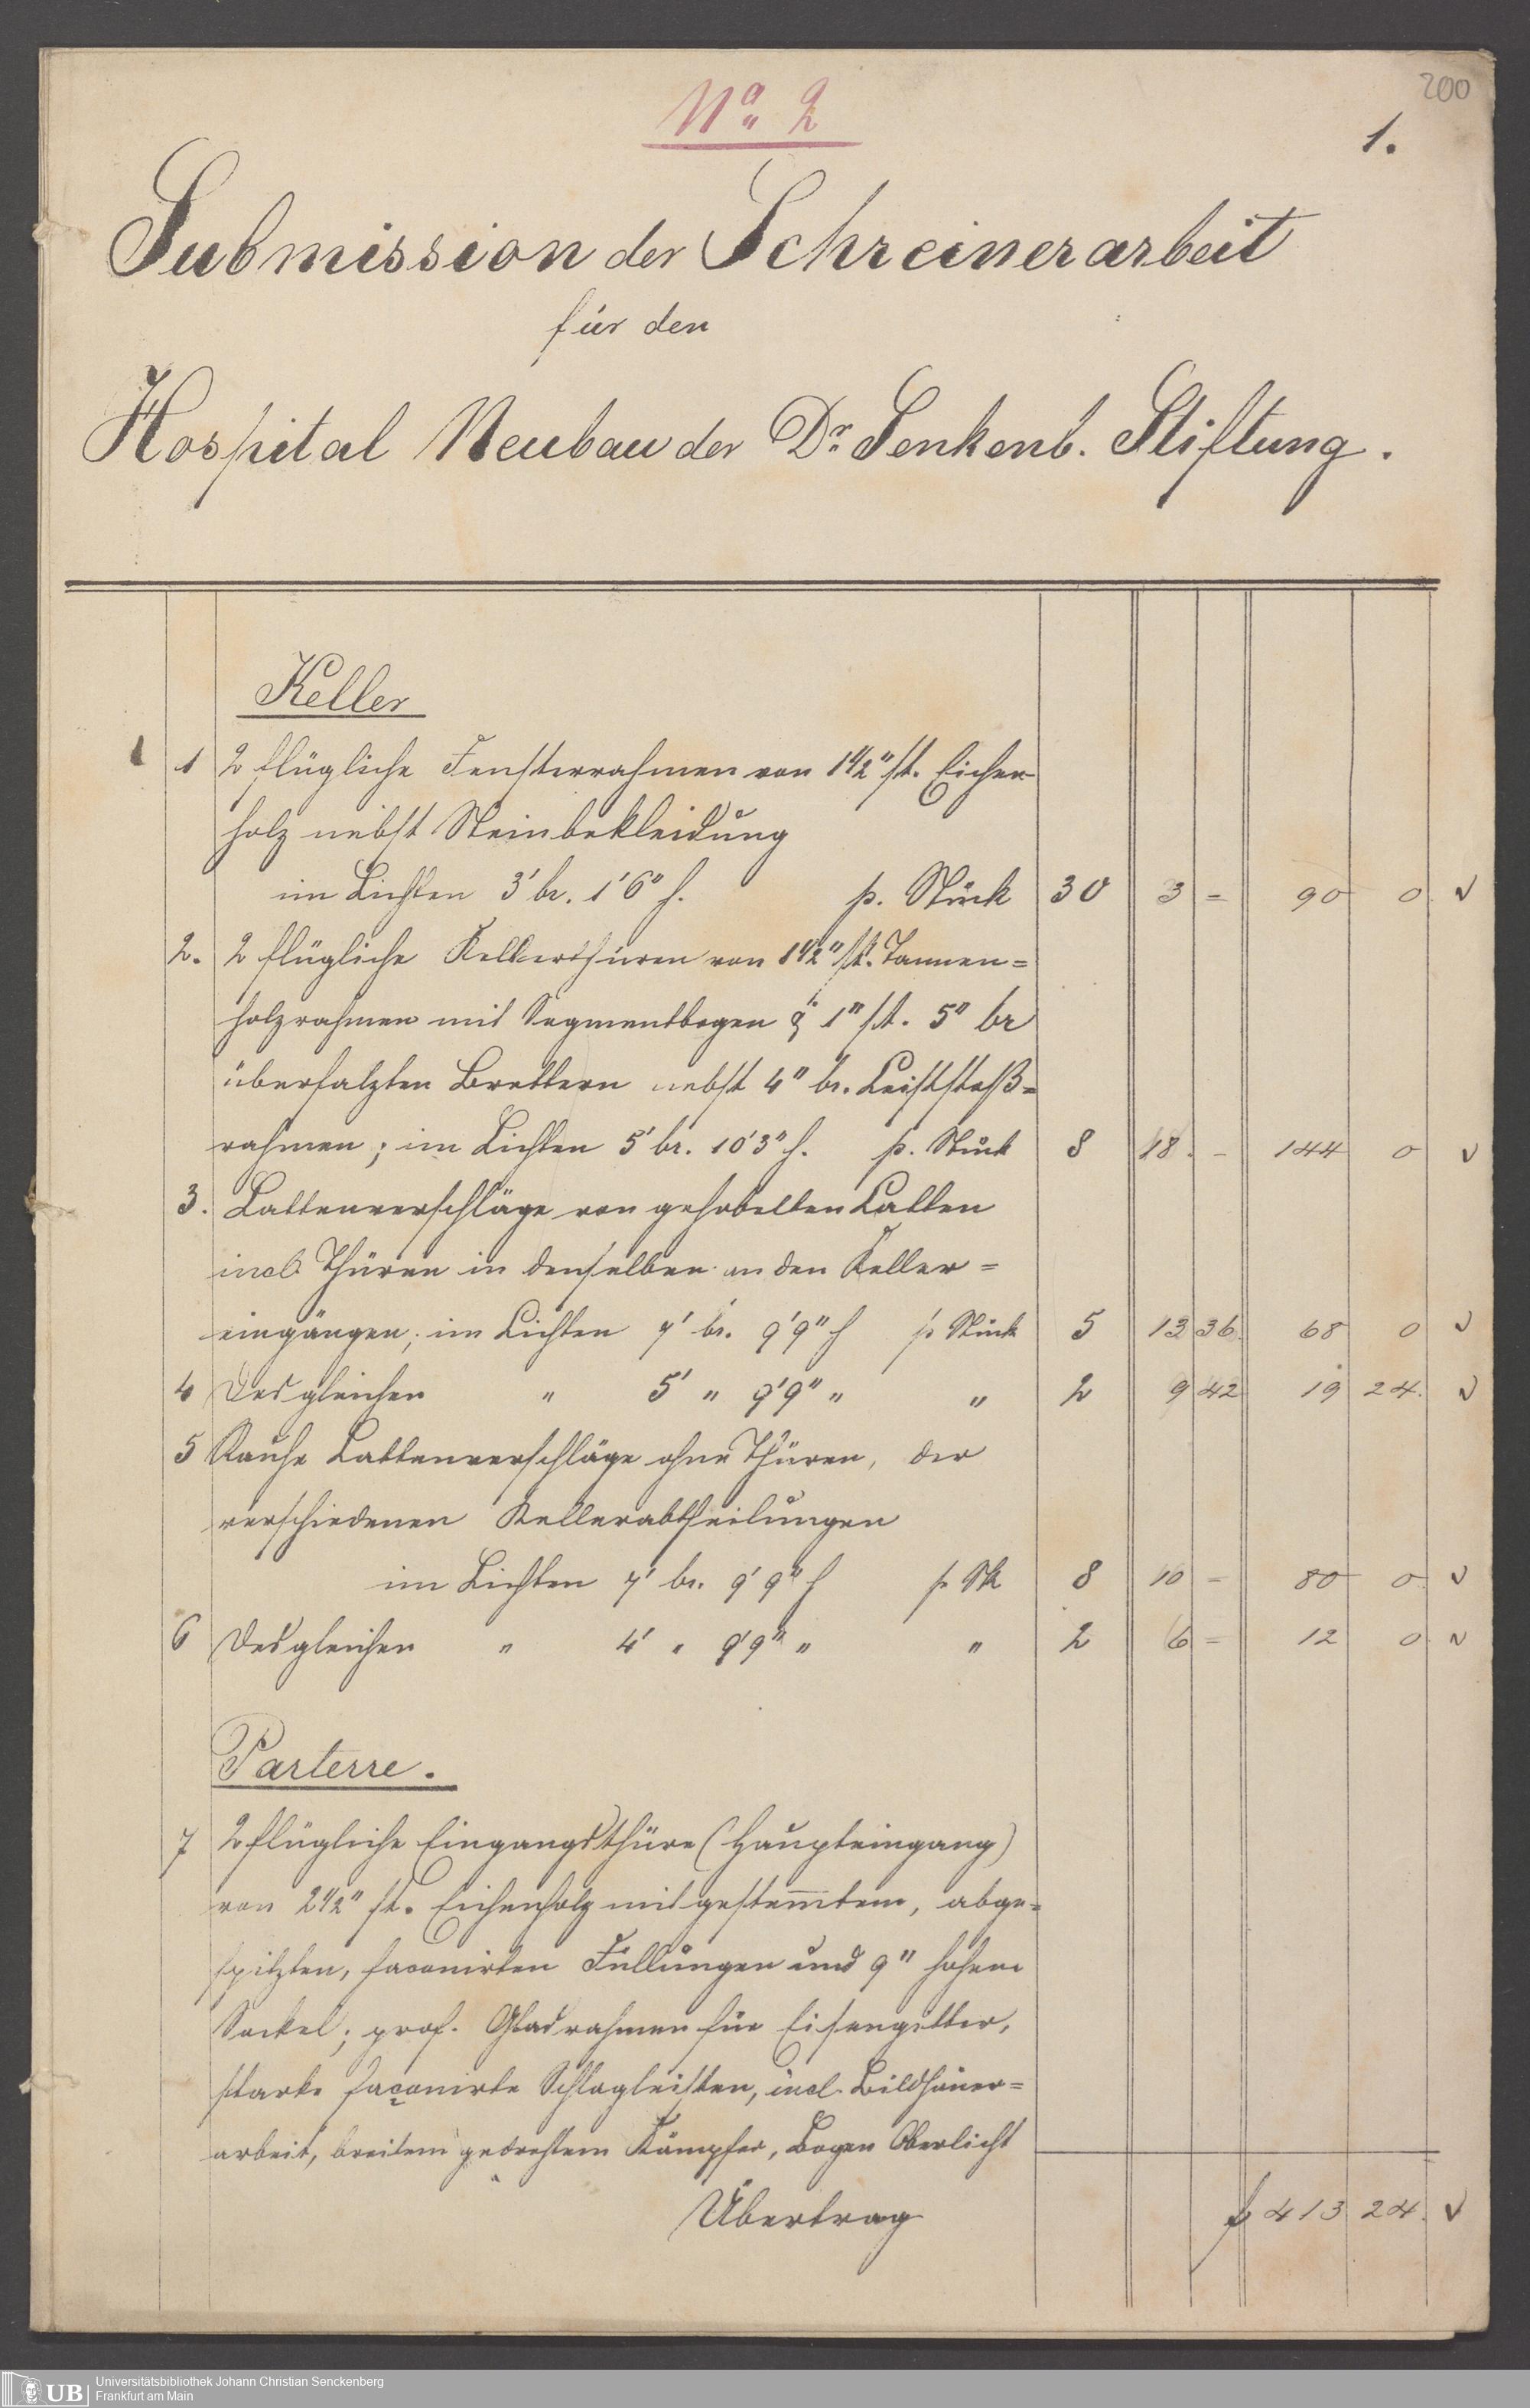 200
No 2
1.
Submission der Schreinerarbeit
für den
Hospital Neubau der Dr. Senkenb. Stiftung.
Keller
1 2 flügliche Fensterrahmen von 1 1/2" st. Eichen
holz nebst Steinbekleidung
im Lichten 3' br. 1' 6" h. p. Stück 30 3 = 90 0 v
2. 2 flügliche Kellerthüren von 1 1/2" st. Tannen=
holzrahmen mit Segmentbogen & 1" st. 5" br
überfalzten Brettern nebst 4" br.
rahmen; im Lichten 5' br. 10' 3" h. p. Stück 8 18. - 144 0 v
3. Lattenverschläge von gehobelten Latten
incl. Thüren in denselben an den Keller=
eingängen; im Lichten 7' br. 9' 9" h p Stück 5 13 36 68 0 v
4 Desgleichen " 5' " 9' 9" " " 2 9 42 19 24. v
5 Rauhe Lattenverschläge ohne Thüren, der
verschiedenen Kellerabtheilungen
im Lichten 7' br. 9' 9" h p. Stk 8 10 - 80 0 v
6 Desgleichen " 4' " 9' 9" " " 2 6 = 12 0 v
Parterre.
7 2 flügliche Eingangsthüre (Haupteingang)
von 2 1/2" st. Eichenholz mit gestem̅tem, abge=
spitzten, faconirten Füllungen und 9" hohem
Sockel; prof. Glasrahmen für Eisengitter,
starke façonirte Schlagleisten, incl. Bildhauer=
arbeit, breitem gedrehtem Kämpfer, Bogen Oberlicht
Übertrag f 413 24. v
UB
Universitätsbibliothek Johann Christian Senckenberg
Frankfurt am Main